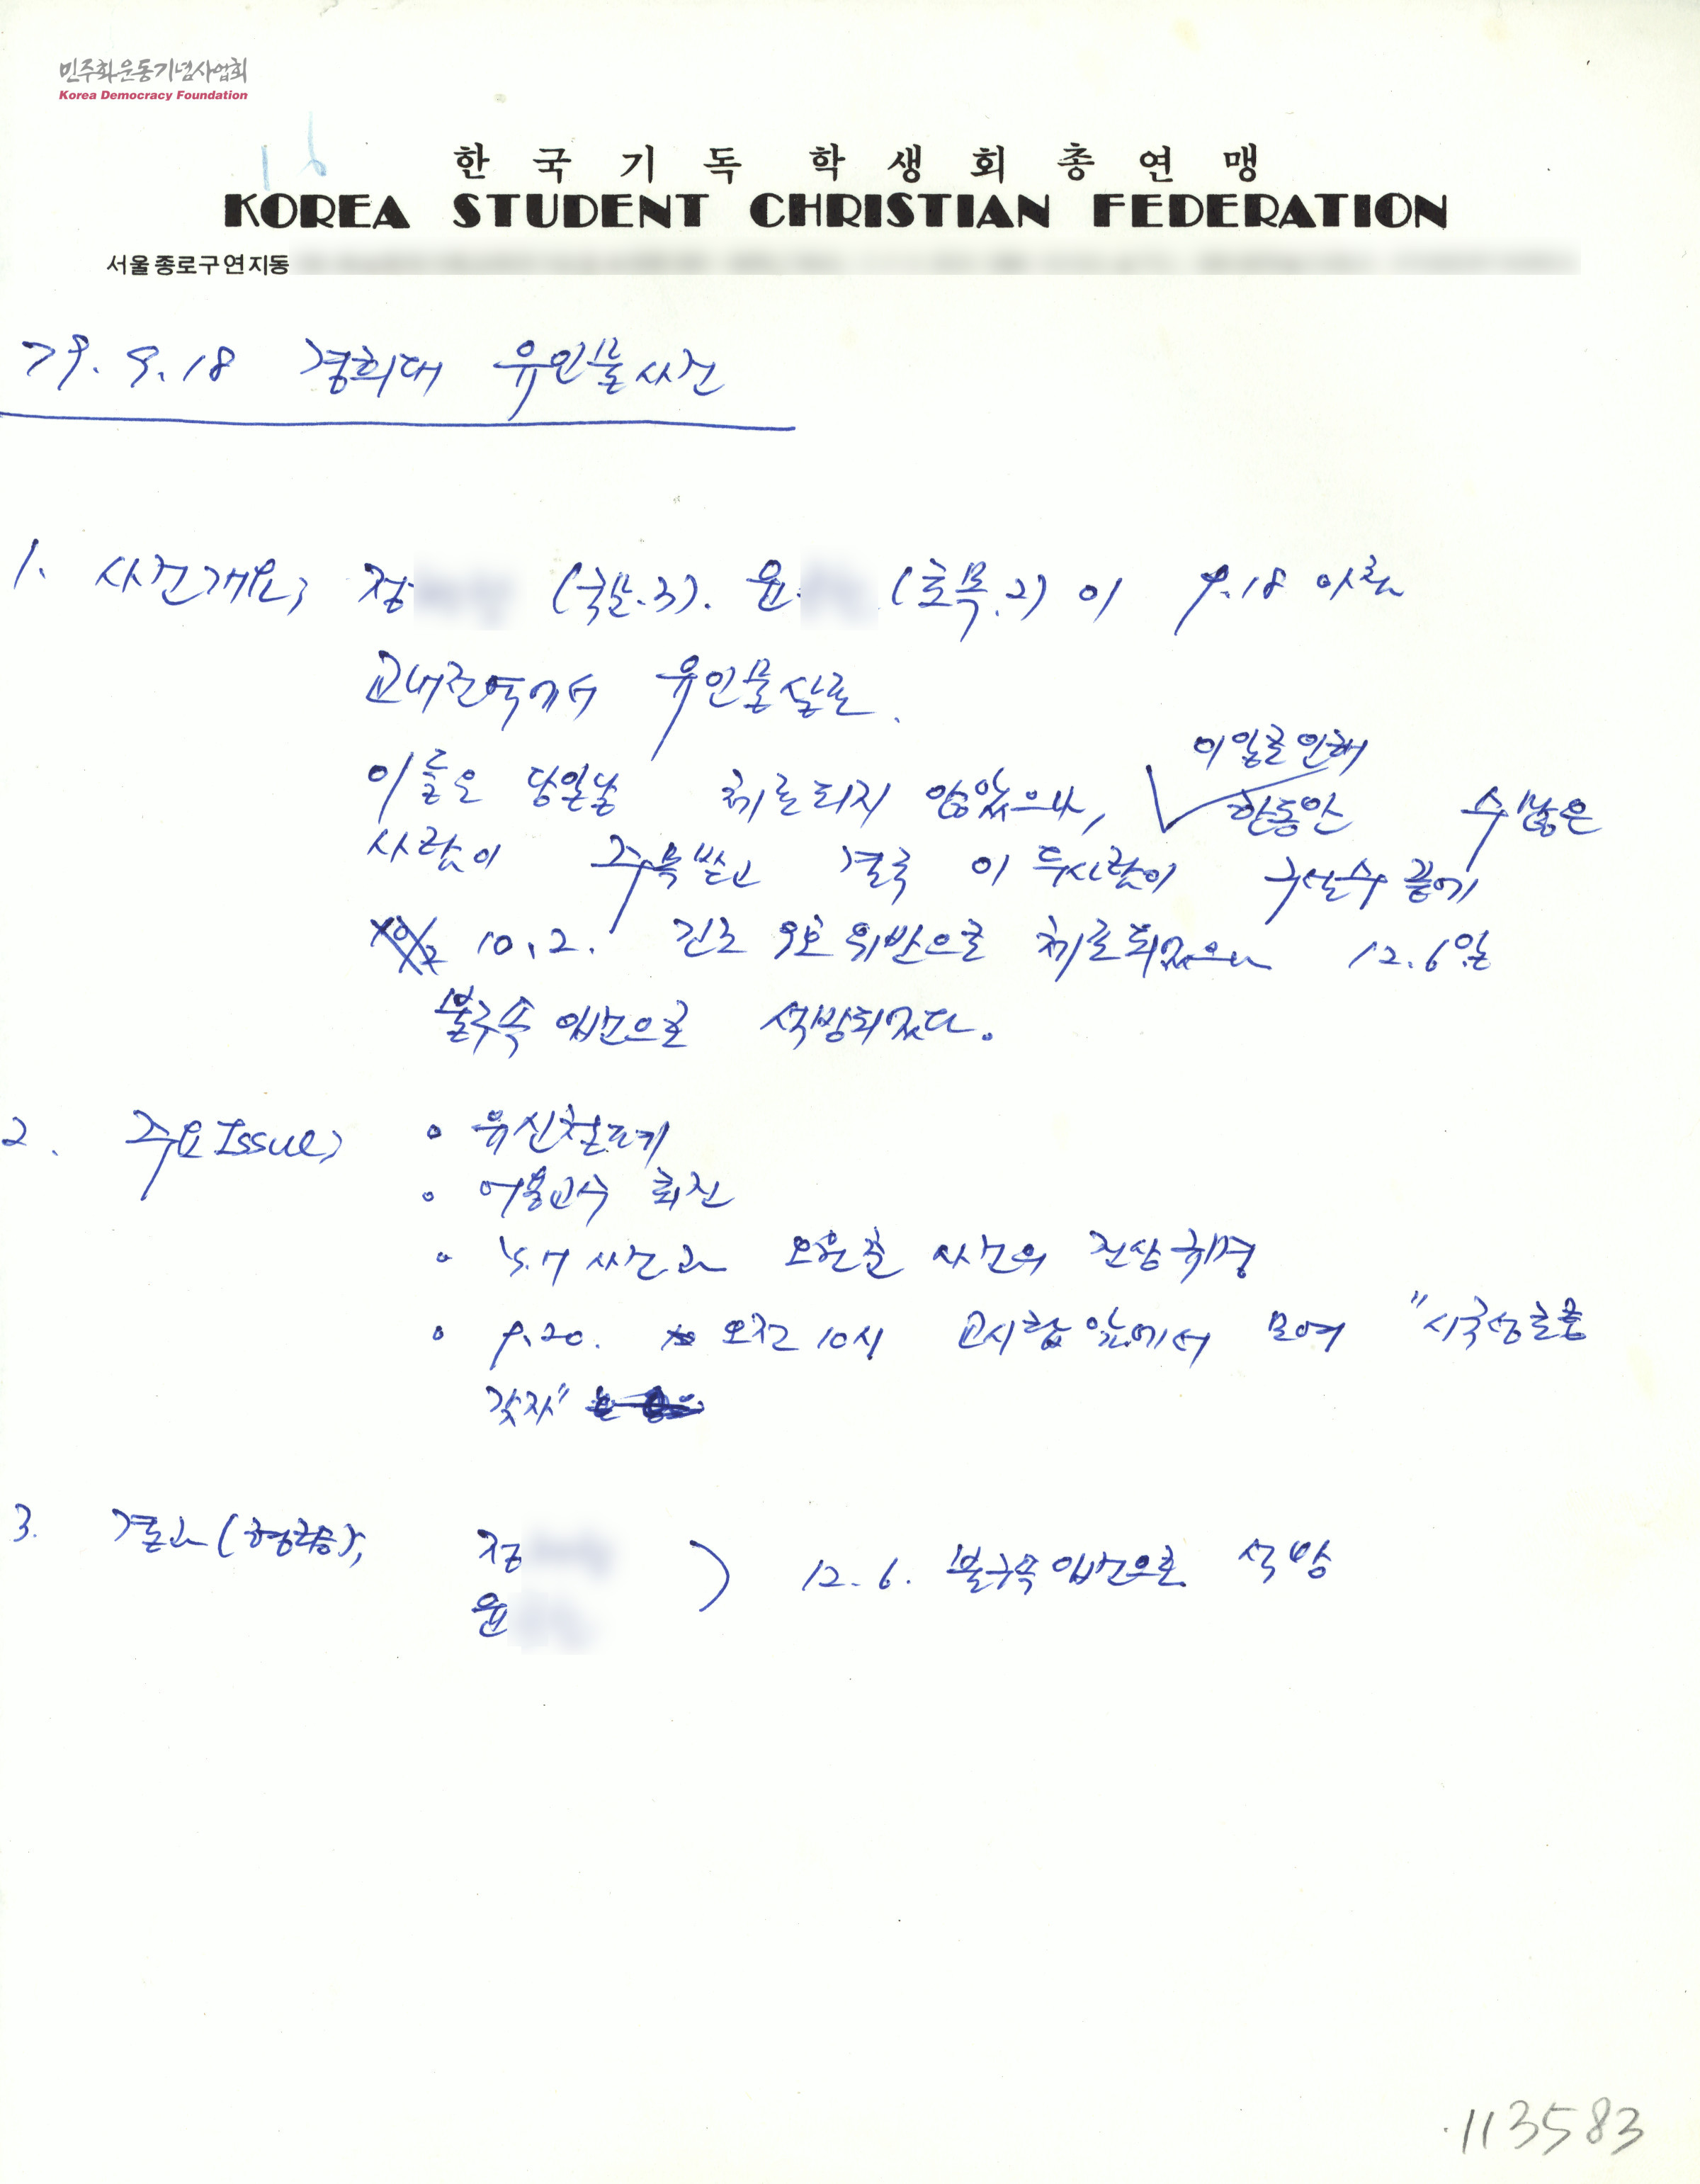 민주화운동기념사업회
Korea Democracy Foundation
16
한국기독학생회총연맹
KOREA STUDENT CHRISTIAN FEDERATION
서울종로구연지동
79. 9. 18 경희대 유인물사건
1. 사건개요; 정 (국문.3). 윤 (호목.2) 이 9.18 아침
교내전역에서 유인물살포.
이들은 당일날 체포되지 않았으나, 이일로인해 한동안 수많은
사람이 주목받고 결국 이 두사람이 수끝에
10.2. 긴조 9호 위반으로 체포되었으나 12.6일
불구속 입건으로 석방되었다.
2. 주요Issue;
◦ 유신철폐
◦ 어용교수 퇴진
◦ Y.H 사건과 오원춘 사건의 진상규명
◦ 9.20. 오전 10시 교시탑앞에서 모여 "시국성토를
갖자"
3. 결과(형량등); 정
윤
) 12.6. 불구속입건으로 석방
113583